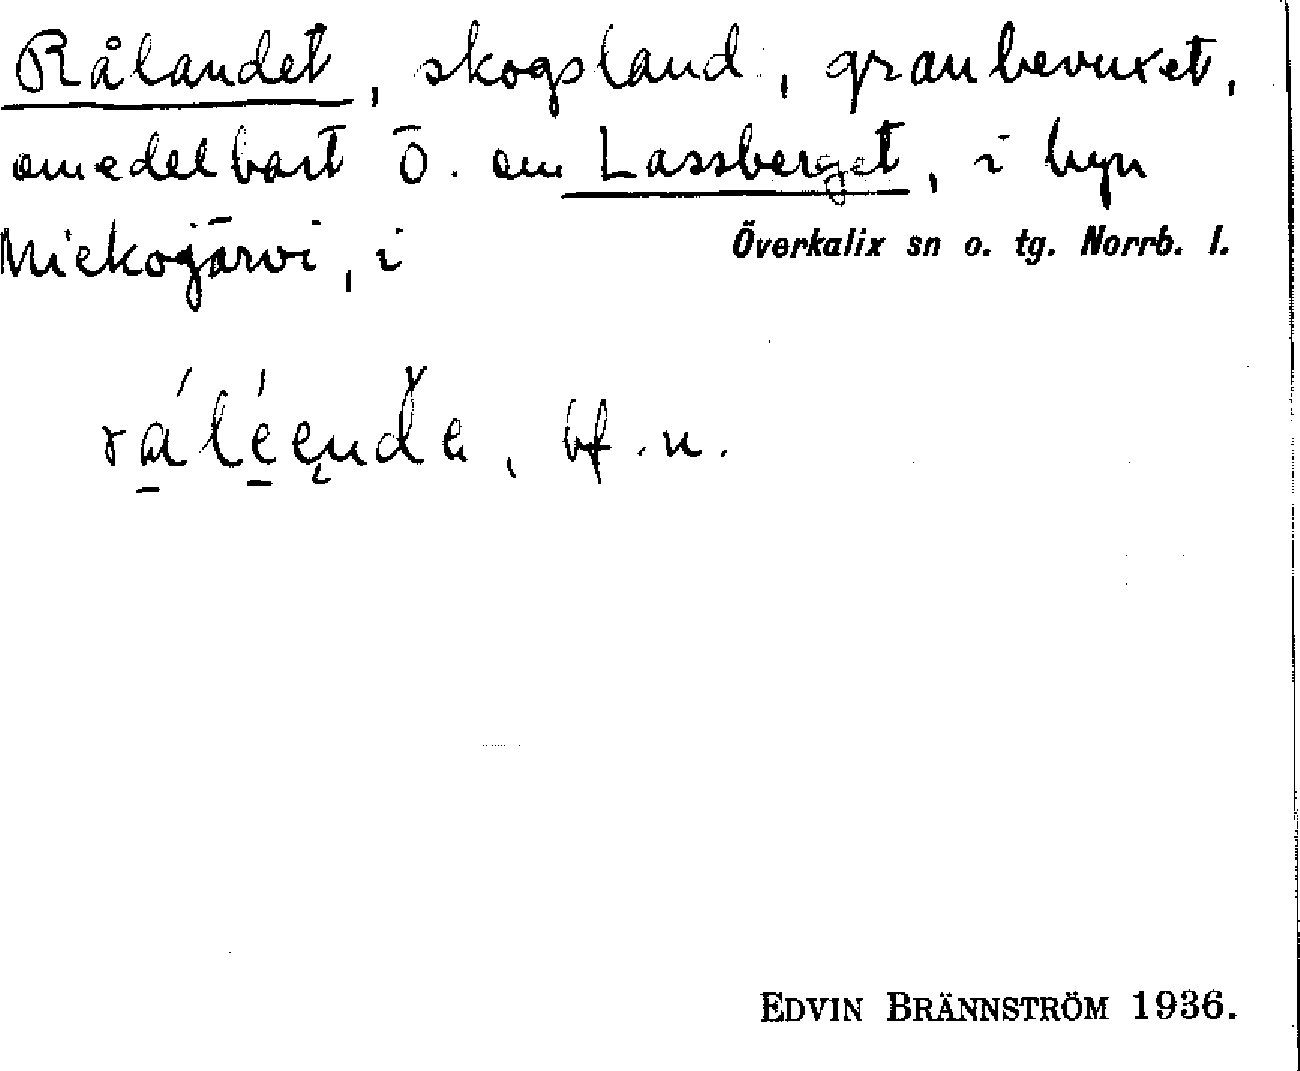 Rålandet, skogsland, granbevuxet,
omedelbart Ö. om Lassberget, i byn
Miekojärvi, i Överkalix sn o. tg. Norrb. l.
bf. n.
EDVIN BRÄNNSTRÖM 1936.